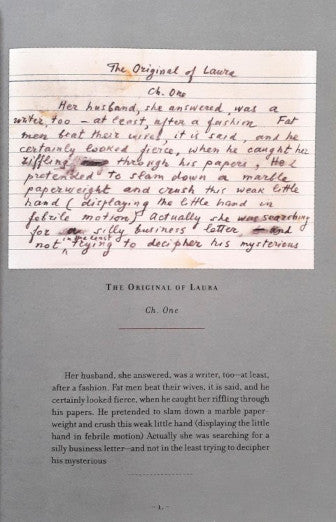 The Original of Laura
Ch. One
Her husband, she answered, was a
writer too — at least, after a fashion. Fat
men beat their wives, it is said, and he
certainly looked fierce, when he caught her
riffling through his papers. He
pretended to slam down a marble
paperweight and crush this weak little
hand (displaying the little hand in
febrile motion) Actually she was searching
for a silly business letter — and
not in the least trying to decipher his mysterious
THE ORIGINAL OF LAURA
Ch. One
Her husband, she answered, was a writer, too—at least,
after a fashion. Fat men beat their wives, it is said, and he
certainly looked fierce, when he caught her riffling through
his papers. He pretended to slam down a marble paper-
weight and crush this weak little hand (displaying the little
hand in febrile motion) Actually she was searching for a
silly business letter—and not in the least trying to decipher
his mysterious
- 1. -